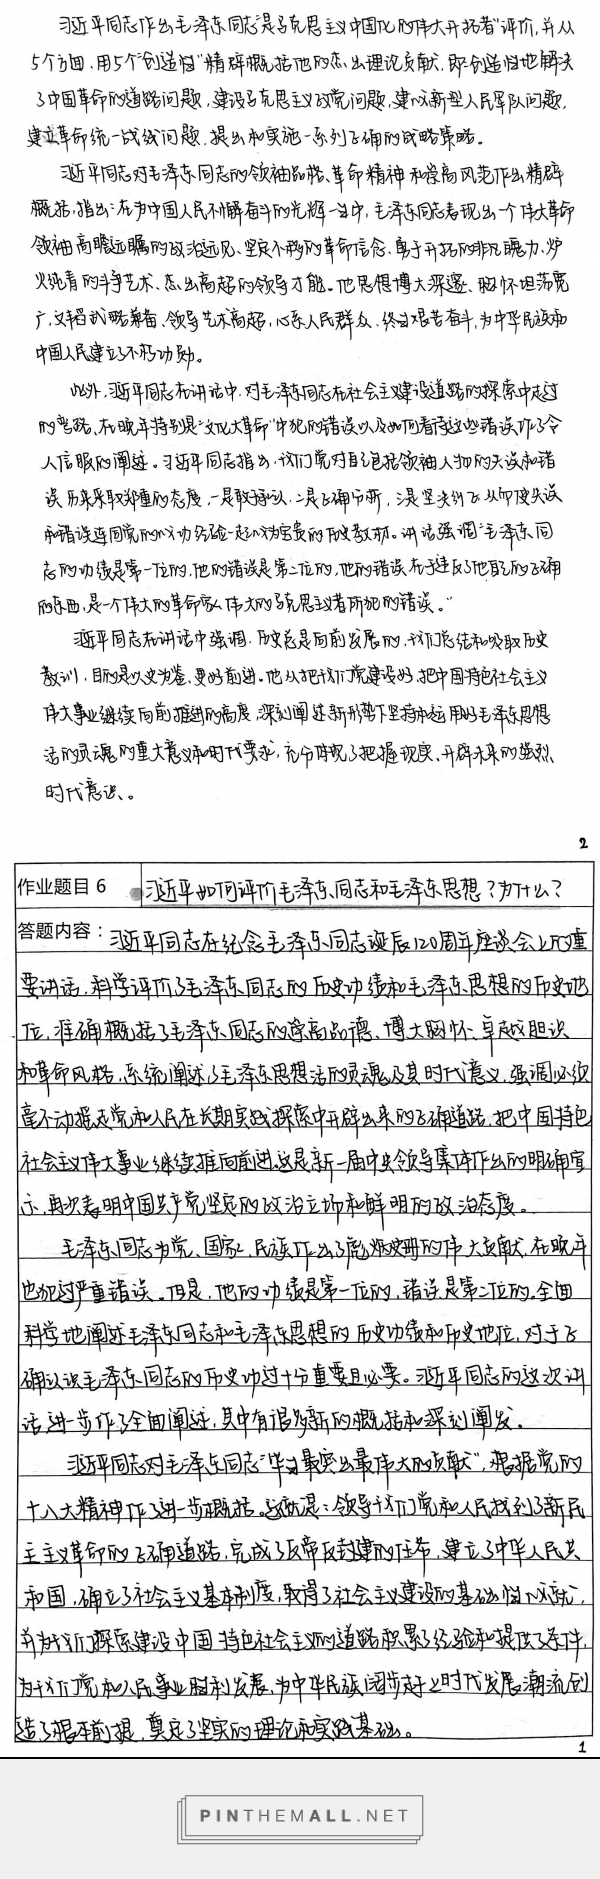 习近平同志作出毛泽东同志“是马克思主义中国化的伟大开拓者”评价,并从
5个方面,用5个“创造性”精辟概括他的杰出理论贡献,即创造性地解决
了中国革命的道路问题,建设马克思主义政党问题,建设新型人民军队问题,
建立革命统一战线问题,提出和实施一系列正确的战略策略。
习近平同志对毛泽东同志的领袖品格、革命精神和崇高风范作出精辟
概括,指出:在为中国人民不懈奋斗的光辉一生中,毛泽东同志表现出一个伟大革命
领袖高瞻远瞩的政治远见、坚定不移的革命信念、勇于开拓的非凡魄力、炉
火纯青的斗争艺术、杰出高超的领导才能。他思想博大深邃、胸怀坦荡宽
广,文韬武略兼备、领导艺术高超,心系人民群众、终生艰苦奋斗,为中华民族和
中国人民建立了不朽功勋。
此外,习近平同志在讲话中,对毛泽东同志在社会主义建设道路的探索中走过
的弯路、在晚年特别是“文化大革命”中犯的错误以及如何看待这些错误作了令
人信服的阐述。习近平同志指出,我们党对自己包括领袖人物的失误和错
误历来采取郑重的态度,一是敢于承认,二是正确分析,三是坚决纠正,从而使失误
和错误连同党的成功经验一起成为宝贵的历史教材。讲话强调“毛泽东同
志的功绩是第一位的,他的错误是第二位的,他的错误在于违反了他自己的正确
的东西,是一个伟大的革命家、伟大的马克思主义者所犯的错误。”
习近平同志在讲话中强调,历史总是向前发展的,我们总结和吸取历史
教训,目的是以史为鉴、更好前进。他从把我们党建设好,把中国特色社会主义
伟大事业继续向前推进的高度,深刻阐述新形势下坚持和运用好毛泽东思想
活的灵魂的重大意义和时代要求,充分体现了把握现实、开辟未来的强烈
时代意识。
2
作业题目6 习近平如何评价毛泽东同志和毛泽东思想?为什么?
答题内容:习近平同志在纪念毛泽东同志诞辰120周年座谈会上的重
要讲话,科学评价了毛泽东同志的历史功绩和毛泽东思想的历史地
位,准确概括了毛泽东同志的崇高品德、博大胸怀、卓越胆识
和革命风格,系统阐述了毛泽东思想活的灵魂及其时代意义,强调必须
毫不动摇走党和人民在长期实践探索中开辟出来的正确道路,把中国特色
社会主义伟大事业继续推向前进。这是新一届中央领导集体作出的明确宣
示,再次表明中国共产党坚定的政治立场和鲜明的政治态度。
毛泽东同志为党、国家、民族作出了彪炳史册的伟大贡献,在晚年
也犯过严重错误。但是,他的功绩是第一位的,错误是第二位的。全面
科学地阐述毛泽东同志和毛泽东思想的历史功绩和历史地位,对于正
确认识毛泽东同志的历史功过十分重要且必要。习近平同志的这次讲
话进一步作了全面阐述,其中有很多新的概括和深刻阐发。
习近平同志对毛泽东同志“毕生最突出最伟大的贡献”,根据党的
十八大精神作了进一步概括。这就是:领导我们党和人民找到了新民
主主义革命的正确道路,完成了反帝反封建的任务,建立了中华人民共
和国,确立了社会主义基本制度,取得了社会主义建设的基础性成就,
并为我们探索建设中国特色社会主义的道路积累了经验和提供了条件,
为我们党和人民事业胜利发展、为中华民族阔步赶上时代发展潮流创
造了根本前提,奠定了坚实的理论和实践基础。
1
PINTHEMALL.NET